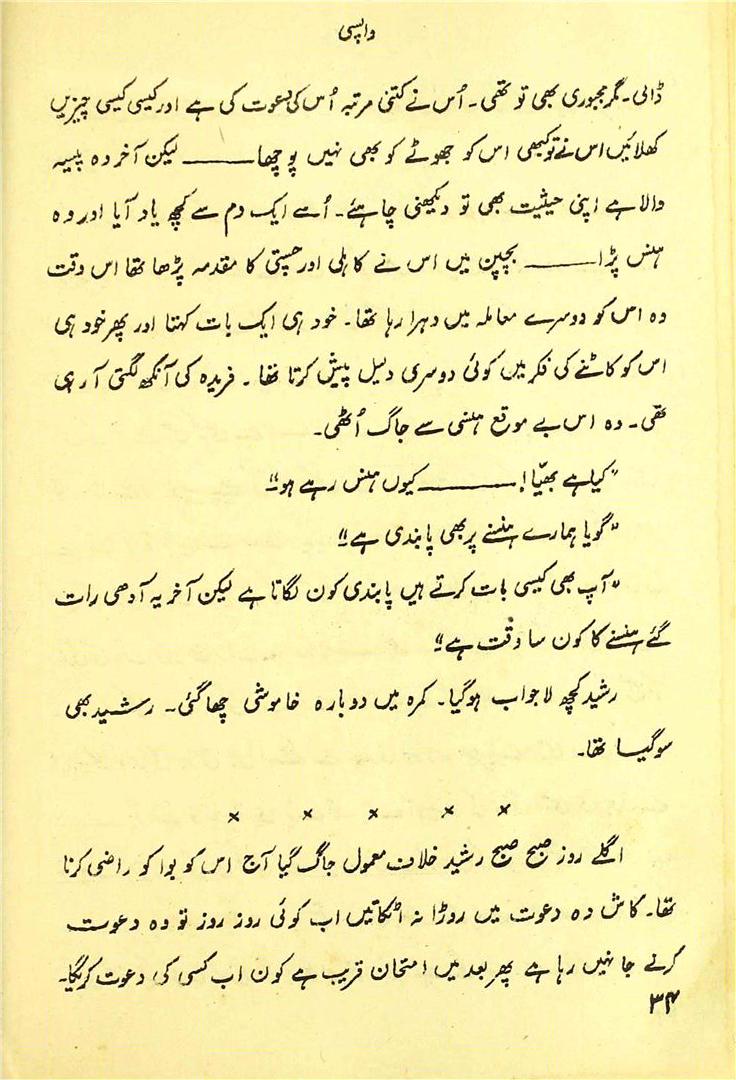 واپسی
ڈالی۔ مگر مجبوری بھی تو تھی۔ اُس نے کتنی مرتبہ اُس کی دعوت کی ہے اور کیسی کیسی چیزیں
کھلائیں اس نے تو کبھی اس کو جھوٹے کو بھی نہیں پوچھا ——— لیکن آخر وہ پیسہ
والا ہے اپنی حیثیت بھی تو دیکھنی چاہئے۔ اُسے ایک دم سے کچھ یاد آیا اور وہ
ہنس پڑا ——— بچپن میں اس نے کاہلی اور چستی کا مقدمہ پڑھا تھا اس وقت
وہ اس کو دوسرے معاملہ میں دہرا رہا تھا۔ خود ہی ایک بات کہتا اور پھر خود ہی
اس کو کاٹنے کی فکر میں کوئی دوسری دلیل پیش کرتا تھا۔ فریدہ کی آنکھ لگتی آ رہی
تھی۔ وہ اس بے موقع ہنسی سے جاگ اُٹھی۔
"کیا ہے بھیّا! ——— کیوں ہنس رہے ہو"
"گویا ہمارے ہنسنے پر بھی پابندی ہے"
"آپ بھی کیسی بات کرتے ہیں پابندی کون لگاتا ہے لیکن آخر یہ آدھی رات
گئے ہنسنے کا کون سا وقت ہے"
رشید کچھ لاجواب ہوگیا۔ کمرہ میں دوبارہ خاموشی چھا گئی۔ رشید بھی
سو گیا تھا۔
× × × × ×
اگلے روز صبح صبح رشید خلاف معمول جاگ گیا آج اس کو بوا کو راضی کرنا
تھا۔ کاش وہ دعوت میں روڑا نہ اٹکاتیں اب کوئی روز روز تو وہ دعوت
کرنے جا نہیں رہا ہے پھر بعد میں امتحان قریب ہے کون اب کسی کی دعوت کریگا۔
۳۴